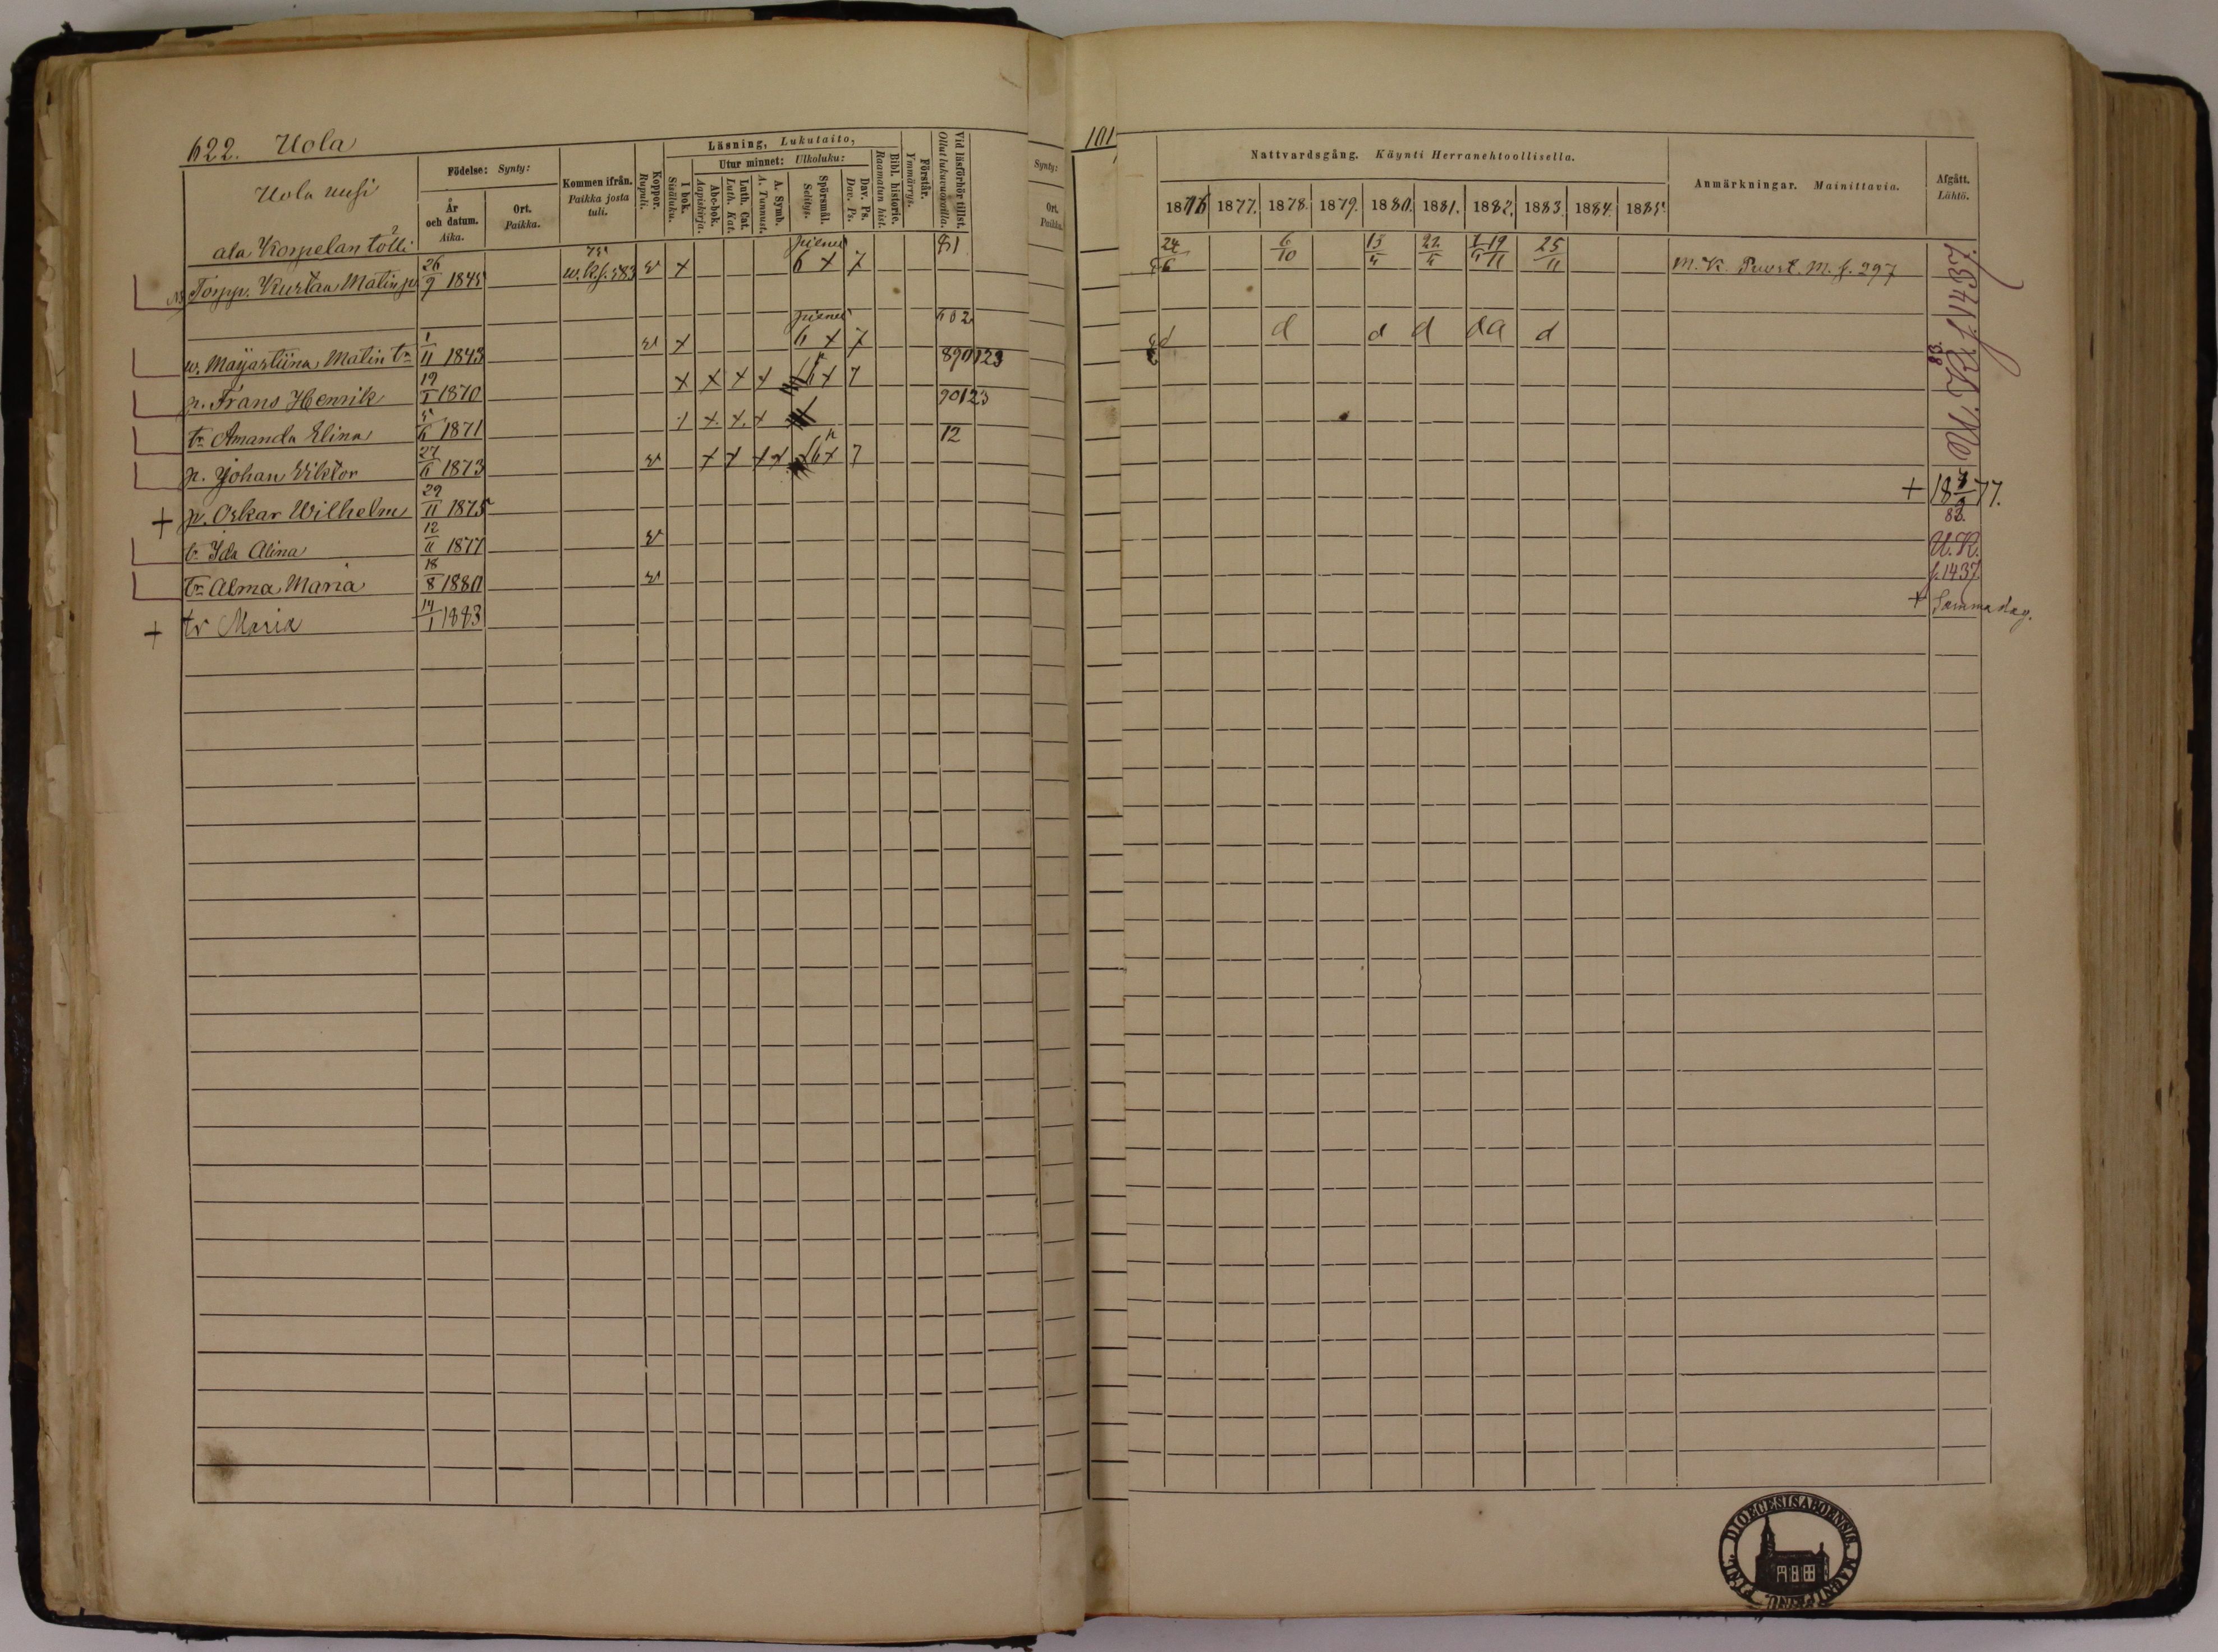 622. Uola
Uola uusi
ala Korpelan tölli
Födelse: Synty:
År och datum. Aika.
Ort. Paikka.
Kommen ifrån. Paikka josta tuli.
Koppor. Rupuli.
Läsning, Lukutaito,
I bok. Sisäluku.
Utur minnet: Ulkoluku:
Abc-bok. Aapiskirja.
Luth. Cat. Luth. Kat.
A. Symb. A. Tunnust.
Spörsmål. Selitys.
Dav. Ps. Dav. Ps.
Bibl. historie. Raamatun hist.
Förstår. Ymmärrys.
Vid läsförhör tillst. Ollut lukukuulusteluilla.
Synty:
Ort. Paikka.
101
Nattvardsgång. Käynti Herranehtoollisella.
1876 1877. 1878. 1879. 1880. 1881. 1882. 1883. 1884. 1885.
Anmärkningar. Mainittavia.
Afgått. Lähtö.
Torpp. Kustaa Matin p. 26/9 1845 75 w. k. f. 583 v x pienen 6 x 7 81 24/6 6/10 25/11 M. K. Puust. M. f. 297
w. Mayastiina Matin tr 1/11 1843 v x pienen 6 x 7 d d d d da d
p. Frans Henrik 19/1 1870 x x x x 6 x 7 890123
tr Amanda Elina 5/6 1871 x x x 90123
p. Johan Viktor 27/6 1873 v x x x x 6 x 7 12
+ p. Oskar Wilhelm 29/11 1875 + 18 77.
tr Ida Alina 12/11 1877 v
tr Alma Maria 18/8 1880 v
+ tr Maria 14/1 1883 + Samma dag.
83. U. K. f. 1437
83. U. K. f. 1437.
FINL. DIOECESIS ABOENSIS. MAGNI PRINC.